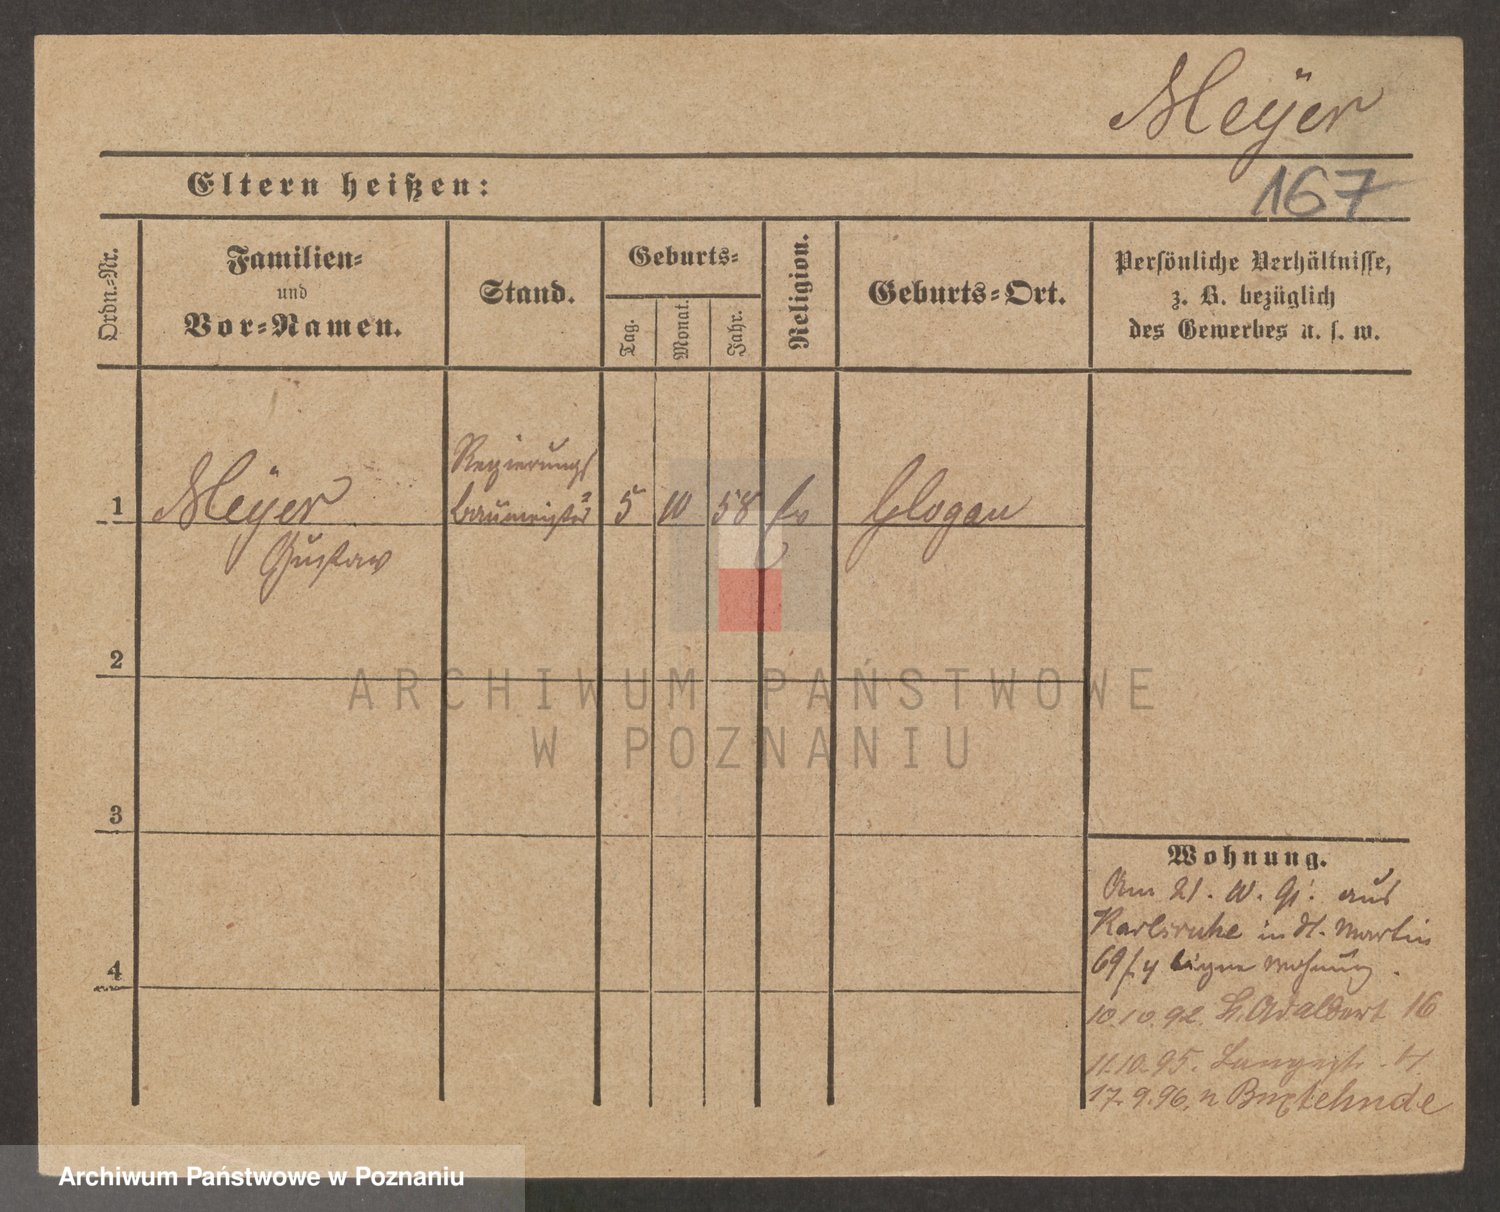 Meÿer
167
Eltern heißen:
Ordn.-Nr.
Familien-
und
Vor-Namen.
Stand.
Geburts-
Tag.
Monat.
Jahr.
Religion.
Geburts-Ort.
Persönliche Verhältnisse,
z. B. bezüglich
des Gewerbes u. s. w.
1
Meÿer
Gustav
Regierungs
baumeister
5
10
58
Ev
Glogau
2
3
4
Wohnung.
Am 21. 10. 91. aus
Karlsruhe in St. Martin
69 eigne Wohnung.
10.10.92. St. Adalbert 16
11.10.95. Langestr.
17.9.96. n Buxtehude
ARCHIWUM PAŃSTWOWE
W POZNANIU
Archiwum Państwowe w Poznaniu